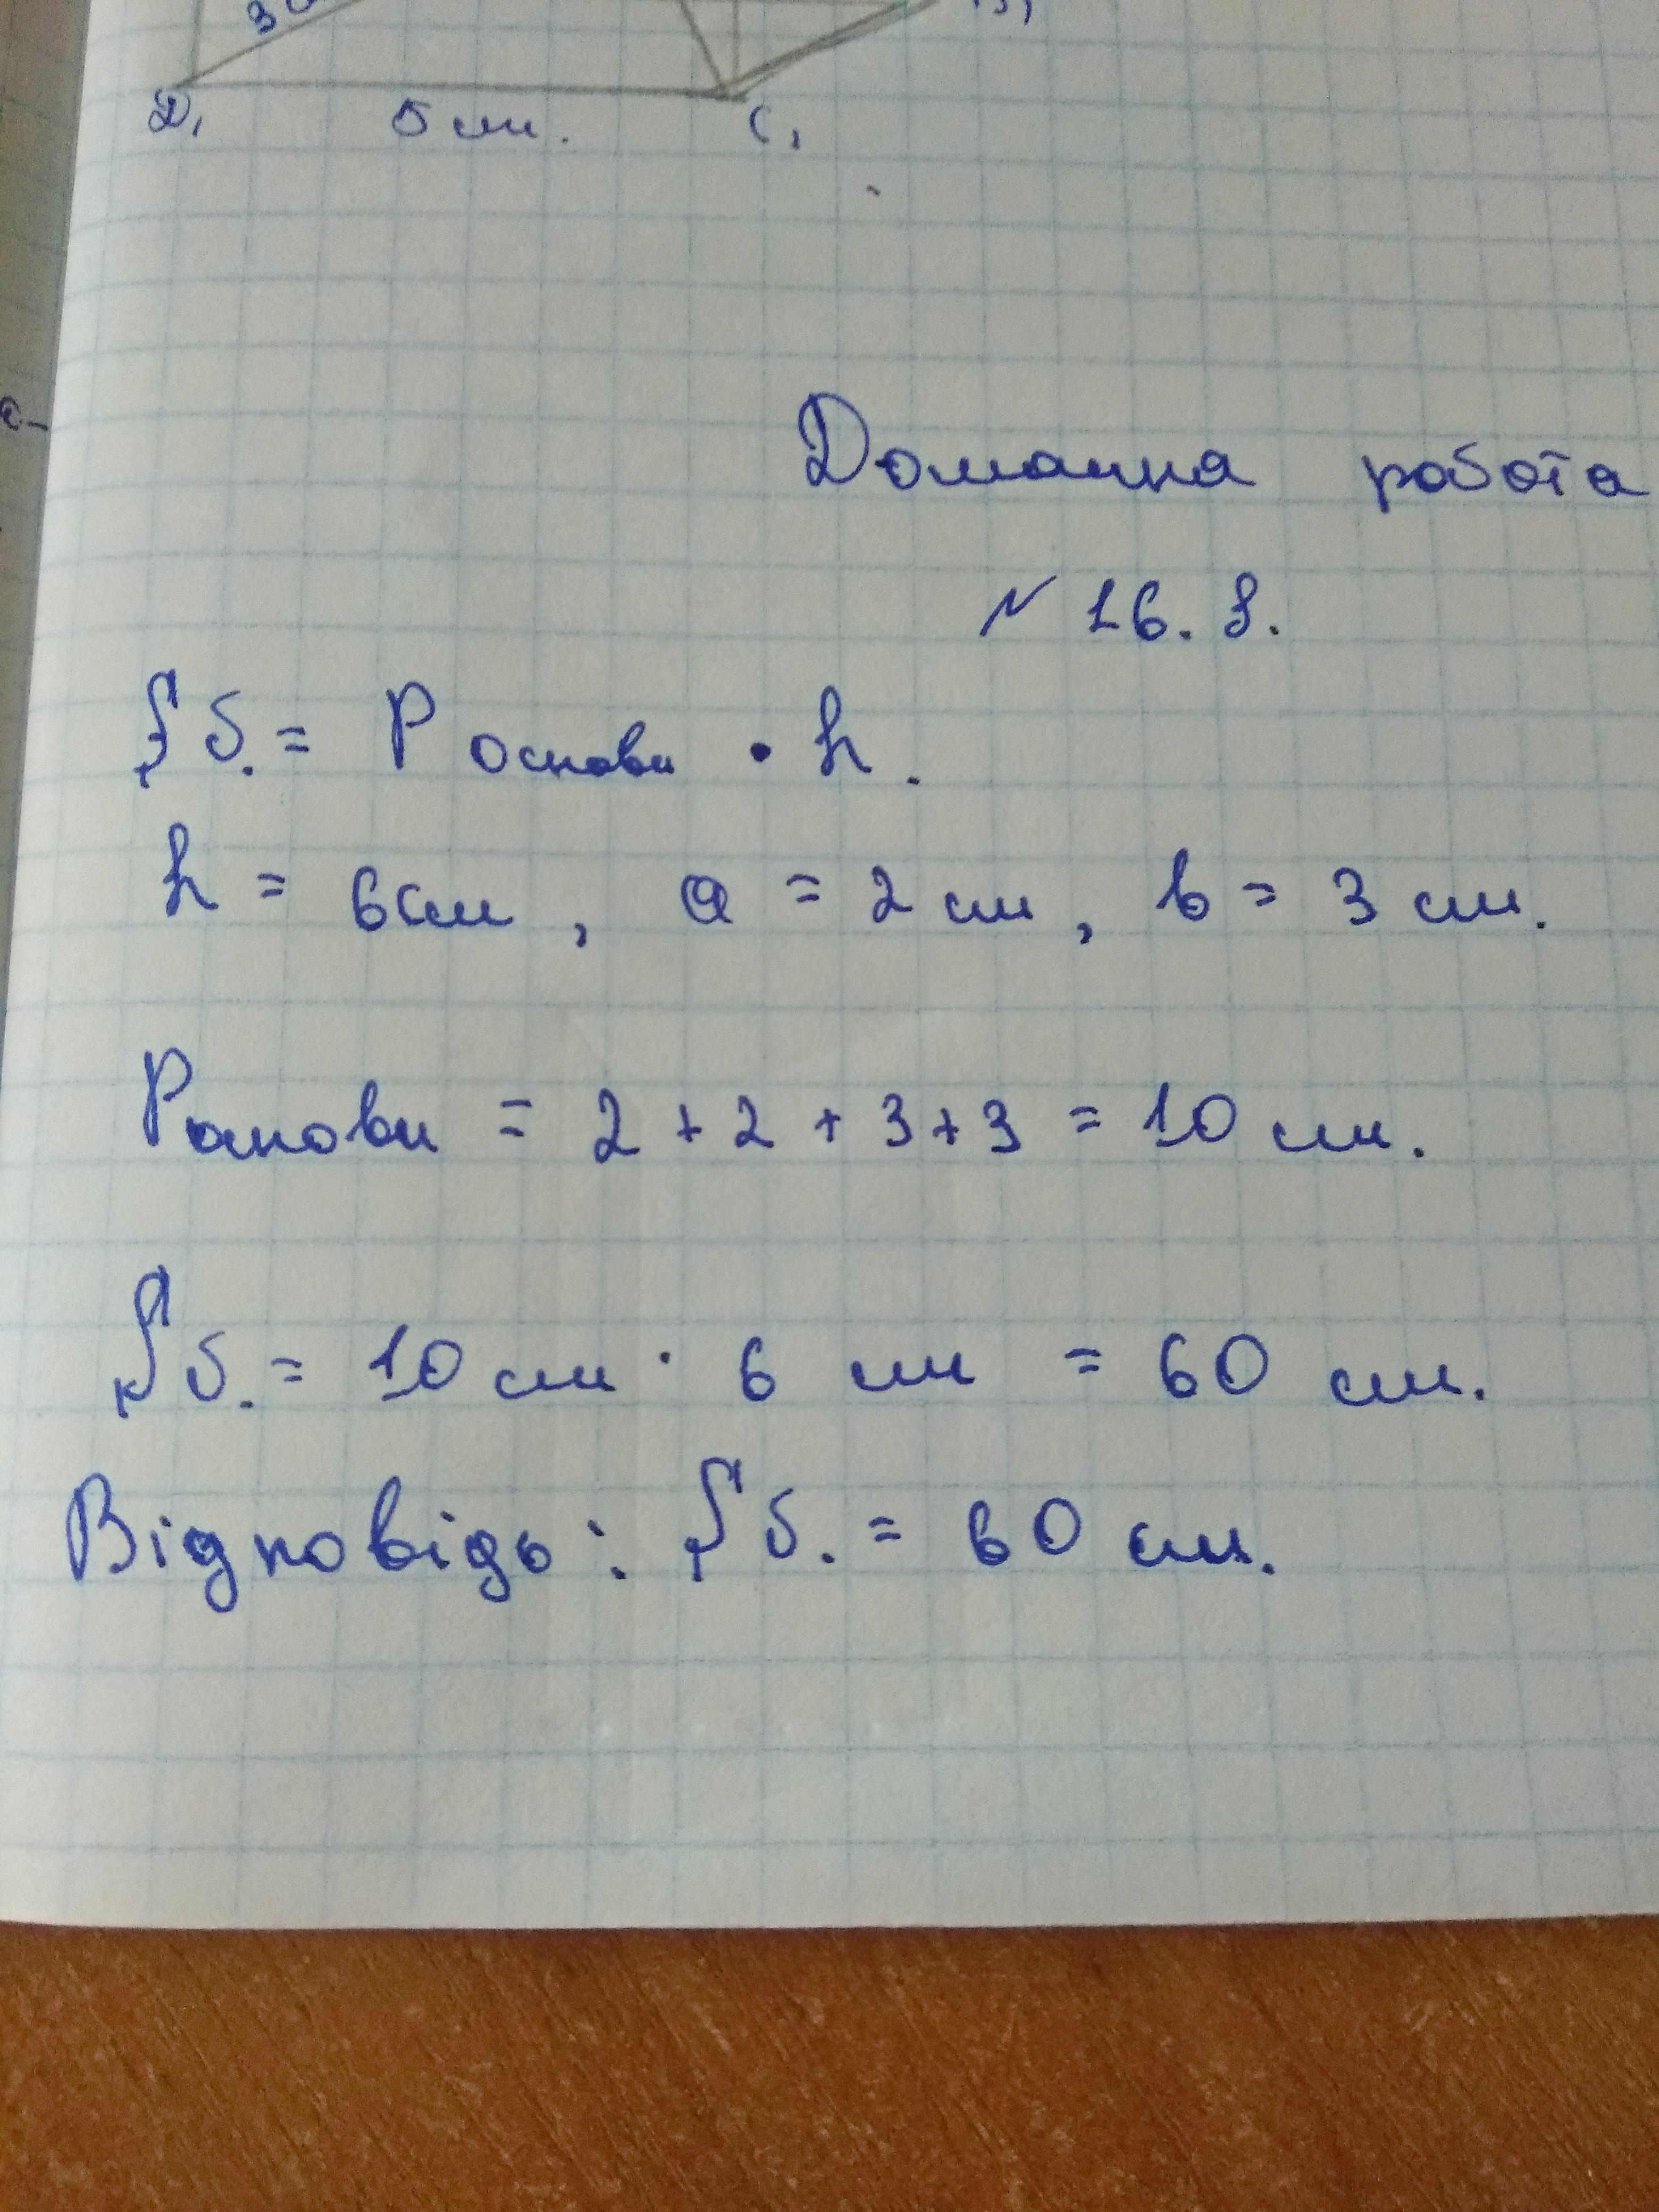 3
D₁ 5 см. C₁
Домашня робота
№ 16.3.
Sб. = P основи • h.
h = 6см, a = 2 см, b = 3 см.
Pоснови = 2 + 2 + 3 + 3 = 10 см.
Sб. = 10 см · 6 см = 60 см.
Відповідь: Sб. = 60 см.